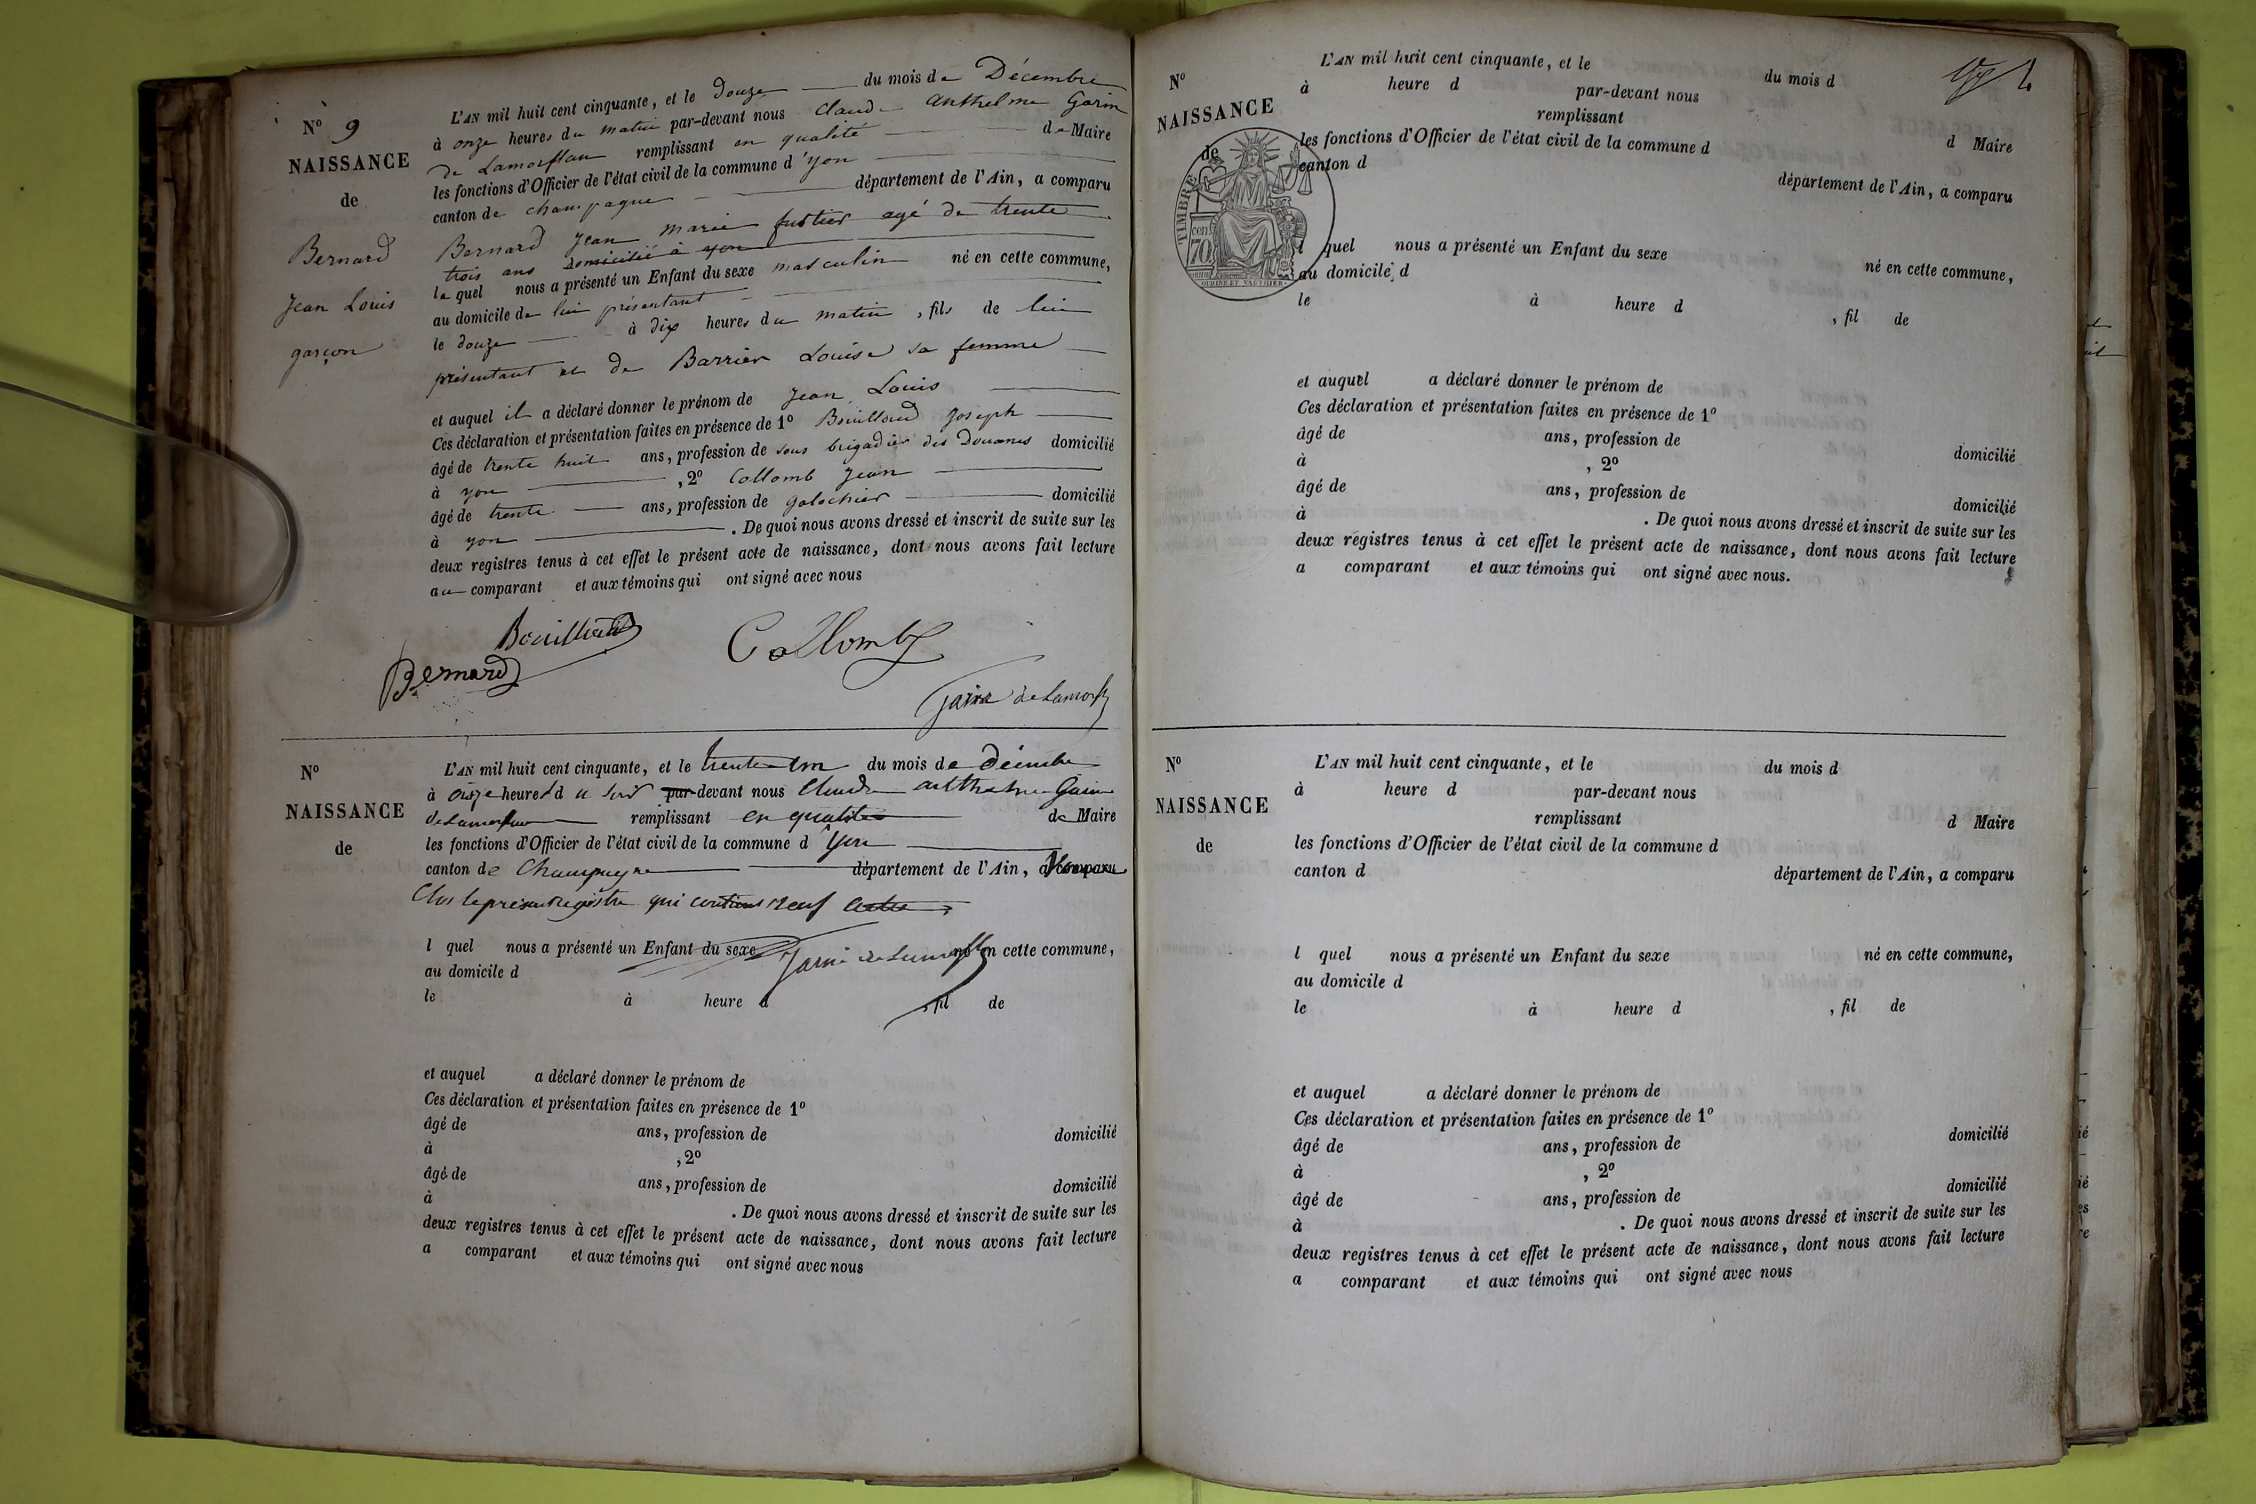 N° 9
NAISSANCE
de
Bernard
Jean Louis
garçon
L'AN mil huit cent cinquante, et le douze du mois de Décembre
à onze heures du matin par-devant nous Claude Anthelme Garin
de Lamorflan remplissant en qualité de Maire
les fonctions d'Officier de l'état civil de la commune d'yon
canton de champagne département de l'Ain, a comparu
Bernard Jean marie fustier agé de trente
trois ans domicilié à yon
le quel nous a présenté un Enfant du sexe masculin né en cette commune,
au domicile de lui présentant
le douze à dix heures du matin, fils de lui
présentant et de Barrier Louise sa femme
et auquel il a déclaré donner le prénom de Jean Louis
Ces déclaration et présentation faites en présence de 1° Bouilloud Joseph
âgé de trente huit ans, profession de sous brigadier des Douanes domicilié
à yon, 2° Collomb Jean
âgé de trente ans, profession de galochier domicilié
à yon. De quoi nous avons dressé et inscrit de suite sur les
deux registres tenus à cet effet le présent acte de naissance, dont nous avons fait lecture
au comparant et aux témoins qui ont signé avec nous
Bouilloud
Collomb
Bernard
Garin de Lamorfl
N°
NAISSANCE
de
L'AN mil huit cent cinquante, et le trente un du mois de décembre
à onze heures du soir par-devant nous Claude anthelme Garin
de Lamorflan remplissant en qualité de Maire
les fonctions d'Officier de l'état civil de la commune d'yon
canton de Champagne département de l'Ain, a comparu
Clos le présent Registre qui contient neuf actes
l quel nous a présenté un Enfant du sexe né en cette commune,
Garin de Lamorfl
au domicile d
le à heure d , fil de
et auquel a déclaré donner le prénom de
Ces déclaration et présentation faites en présence de 1°
âgé de ans, profession de domicilié
à , 2°
âgé de ans, profession de domicilié
à . De quoi nous avons dressé et inscrit de suite sur les
deux registres tenus à cet effet le présent acte de naissance, dont nous avons fait lecture
a comparant et aux témoins qui ont signé avec nous
N°
NAISSANCE
de
TIMBRE
cen
70
L'AN mil huit cent cinquante, et le du mois d
à heure d par-devant nous
remplissant d Maire
les fonctions d'Officier de l'état civil de la commune d
canton d département de l'Ain, a comparu
l quel nous a présenté un Enfant du sexe né en cette commune,
au domicile d
le à heure d , fil de
et auquel a déclaré donner le prénom de
Ces déclaration et présentation faites en présence de 1°
âgé de ans, profession de domicilié
à , 2°
âgé de ans, profession de domicilié
à . De quoi nous avons dressé et inscrit de suite sur les
deux registres tenus à cet effet le présent acte de naissance, dont nous avons fait lecture
a comparant et aux témoins qui ont signé avec nous.
N°
NAISSANCE
de
L'AN mil huit cent cinquante, et le du mois d
à heure d par-devant nous
remplissant d Maire
les fonctions d'Officier de l'état civil de la commune d
canton d département de l'Ain, a comparu
l quel nous a présenté un Enfant du sexe né en cette commune,
au domicile d
le à heure d , fil de
et auquel a déclaré donner le prénom de
Ces déclaration et présentation faites en présence de 1°
âgé de ans, profession de domicilié
à , 2°
âgé de ans, profession de domicilié
à . De quoi nous avons dressé et inscrit de suite sur les
deux registres tenus à cet effet le présent acte de naissance, dont nous avons fait lecture
a comparant et aux témoins qui ont signé avec nous